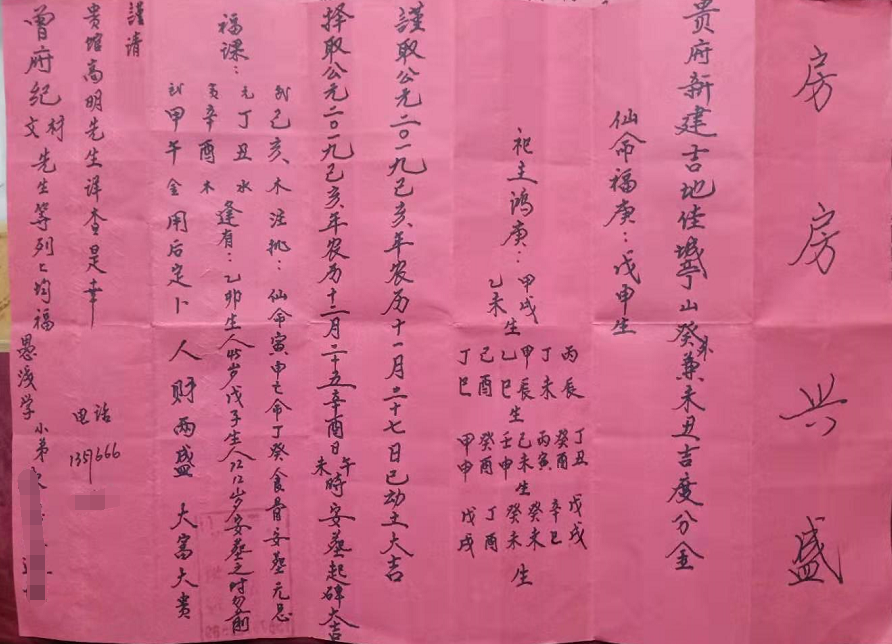 房房兴盛
贵府新建吉地佳城亭山癸兼未丑吉度分金
仙命福庚：戊申生
祀主鸿庚：甲戌 乙未 生
丙辰 癸酉 丁丑 戊戌
丁未 丙寅 辛巳
甲辰 己未 癸未
乙巳生 壬申生 癸未
己酉 癸酉 丁酉 生
丁巳 甲申 戊戌
謹取公元二〇一九己亥年农历十一月二十七日已动土大吉
择取公元二〇一九己亥年农历十二月二十五辛酉日午未時安葬起碑大吉
福课：
己亥木 注挑：仙命寅申七命丁癸食骨安葬元忌
丁丑水 逢有：乙卯生人45岁戊子生人12岁安葬之时勿前
辛酉木
甲午金 用后定卜 人财两盛 大富大贵
謹请
贵堷高明先生详查是幸
电话
曾府纪材文先生等列上均福
愚浅学
小弟